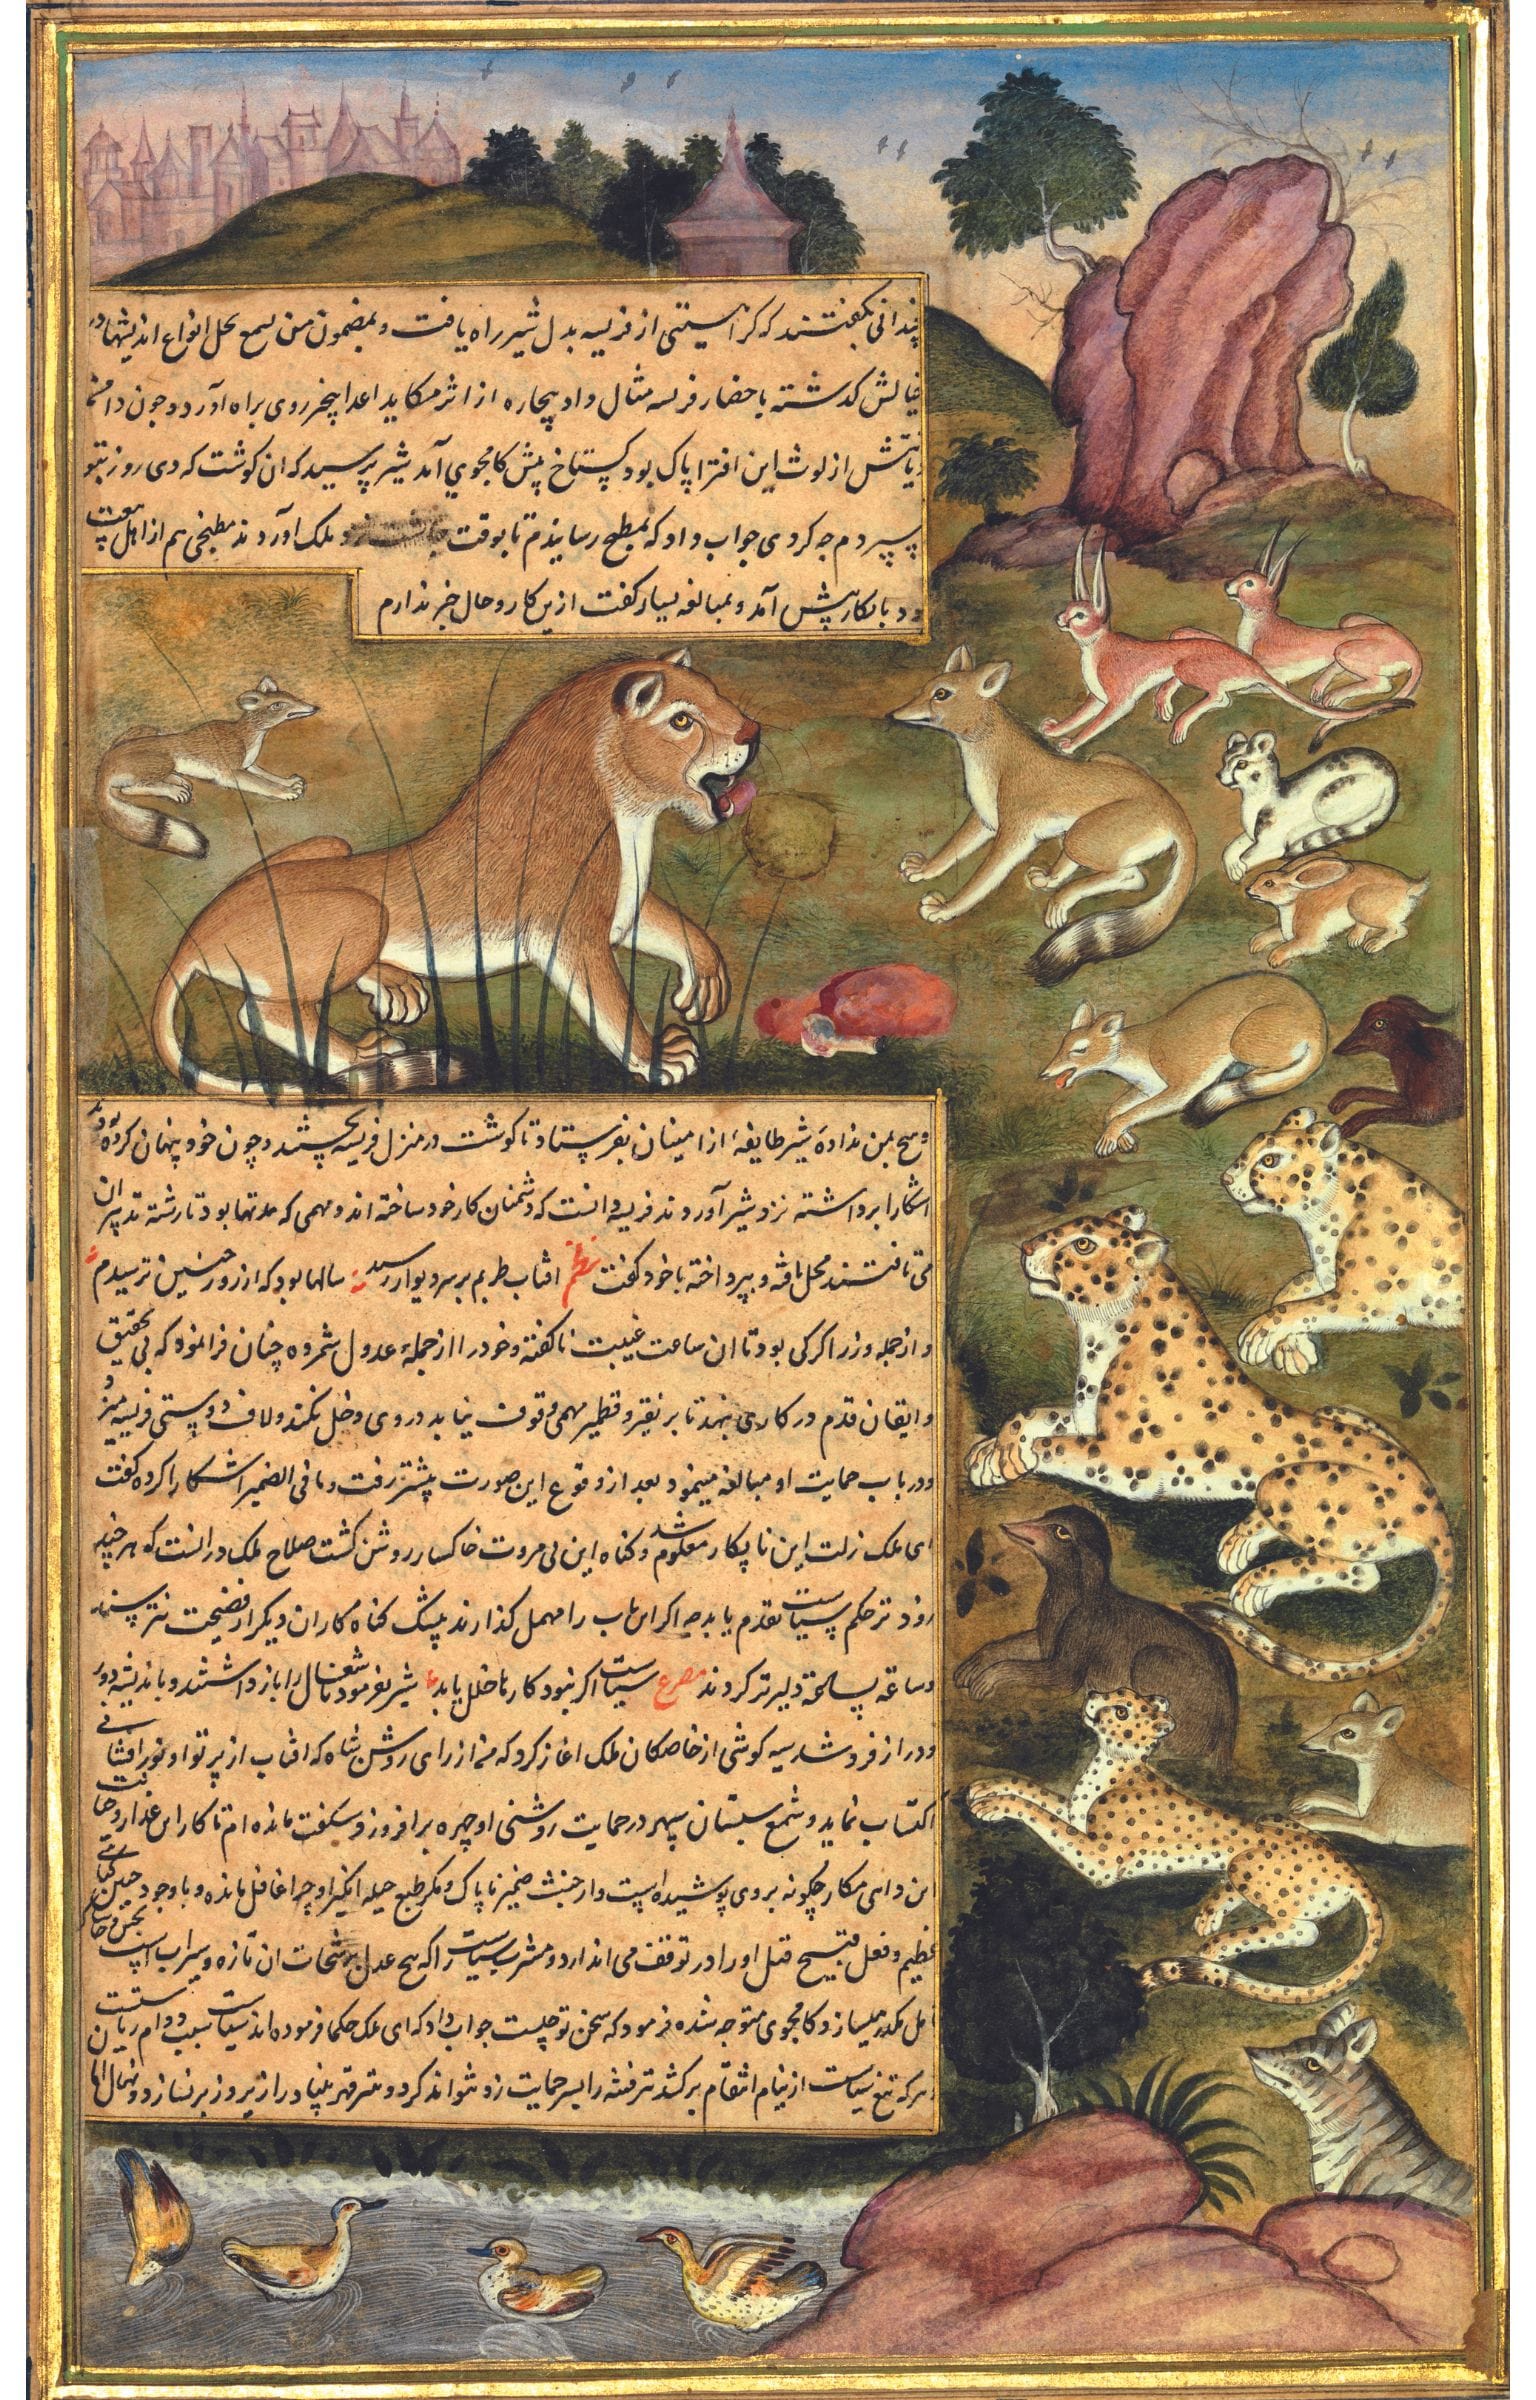 چندانی بگفتند که کراهیتی از فریسه بدل شیر راه یافت و بمضمون من یسمع یخل انواع اندیشها در
خیالش کدشته باحضار فریسه مثال داد بیچاره از اثر مکاید اعدا بیخبر روی براه آورد و چون دامن
دیانتش از لوث این افترا پاک بود کستاخ پیش کامجوی آمد شیر پرسید که ان کوشت که دی روز بتو
سپردم چه کردی جواب داد که بمطبخ رسانیدم تا بوقت نزد ملک اورند مطبخی هم از اهل بیعت
بود بانکار پیش آمد و بمبالغه بسیار کفت ازین کار و حال خبر ندارم
و هیچ بمن نداده شیر طایفهٔ از امینان بفرستاد تا کوشت در منزل فریسه بجستند و چون خود پنهان کرده بودند
اشکارا برداشته نزد شیر آوردند فریسه دانست که دشمنان کار خود ساخته اند و مهمی که مدتها بود تا رشته تدبیر ان
می تافتند محل یافته و بپرداخته با خود کفت نظم افتاب طربم بر سر دیوار رسید سالها بود که از روز چنین ترسیدم
و از جمله وزرا کرکی بود تا ان ساعت غیبت ناکفته و خود را از جملهٔ عدول شمرده چنان فرا نموده که بی تحقیق
و ایقان قدم در کاری ننهد تا بر نقیر و قطمیر مهمی وقوف نیابد در وی دخل نکند و لاف دوستی فریسه میزد
و در باب حمایت او مبالغه مینمود بعد از وقوع این صورت پیشتر رفت و ما فی الضمیر اشکارا کرده کفت
ای ملک زلت این نابکار معلوم شد و کناه این بی مروت خاکسار روشن کشت صلاح ملک در انست که هر چند
زودتر حکم سیاست تقدم یابد چه اکر این باب را مهمل کذارند بیشک کناه کاران دیکر از فضیحت نترسند
و ساعة بساعة دلیرتر کردند مصرع سیاست اکر نبود کارها خلل یابد شیر بفرمود تا شغال را باز داشتند و باندیشه دور
و دراز فرو شد سیه کوشی از خاصکان ملک اغاز کرد که من از رای روشن شاه که افتاب از پرتو او نور افشانی
اکتساب نماید و شمع شبستان سپهر در حمایت روشنی او چهره بر افروزد شکفت مانده ام تا کار این غدار و خیانت
این داهی مکار چکونه بر وی پوشیده است و از خبث ضمیر ناپاک و مکر طبع حیله انکیز او چرا غافل مانده و با وجود چنین کناهی
عظیم و فعل قبیح قتل او را در توقف می اندازد و مشرب سیاست را که هیچ عدل برشحات ان تازه و سیراب است
کامجوی متوجه شده فرمود که سخن تو چیست جواب داد که ای ملک حکما فرموده اند سیاست سبب دوام ریاست
هر که تیغ سیاست از نیام انتقام بر کشد سر فتنه را بسر حمایت زد نتواند کرد